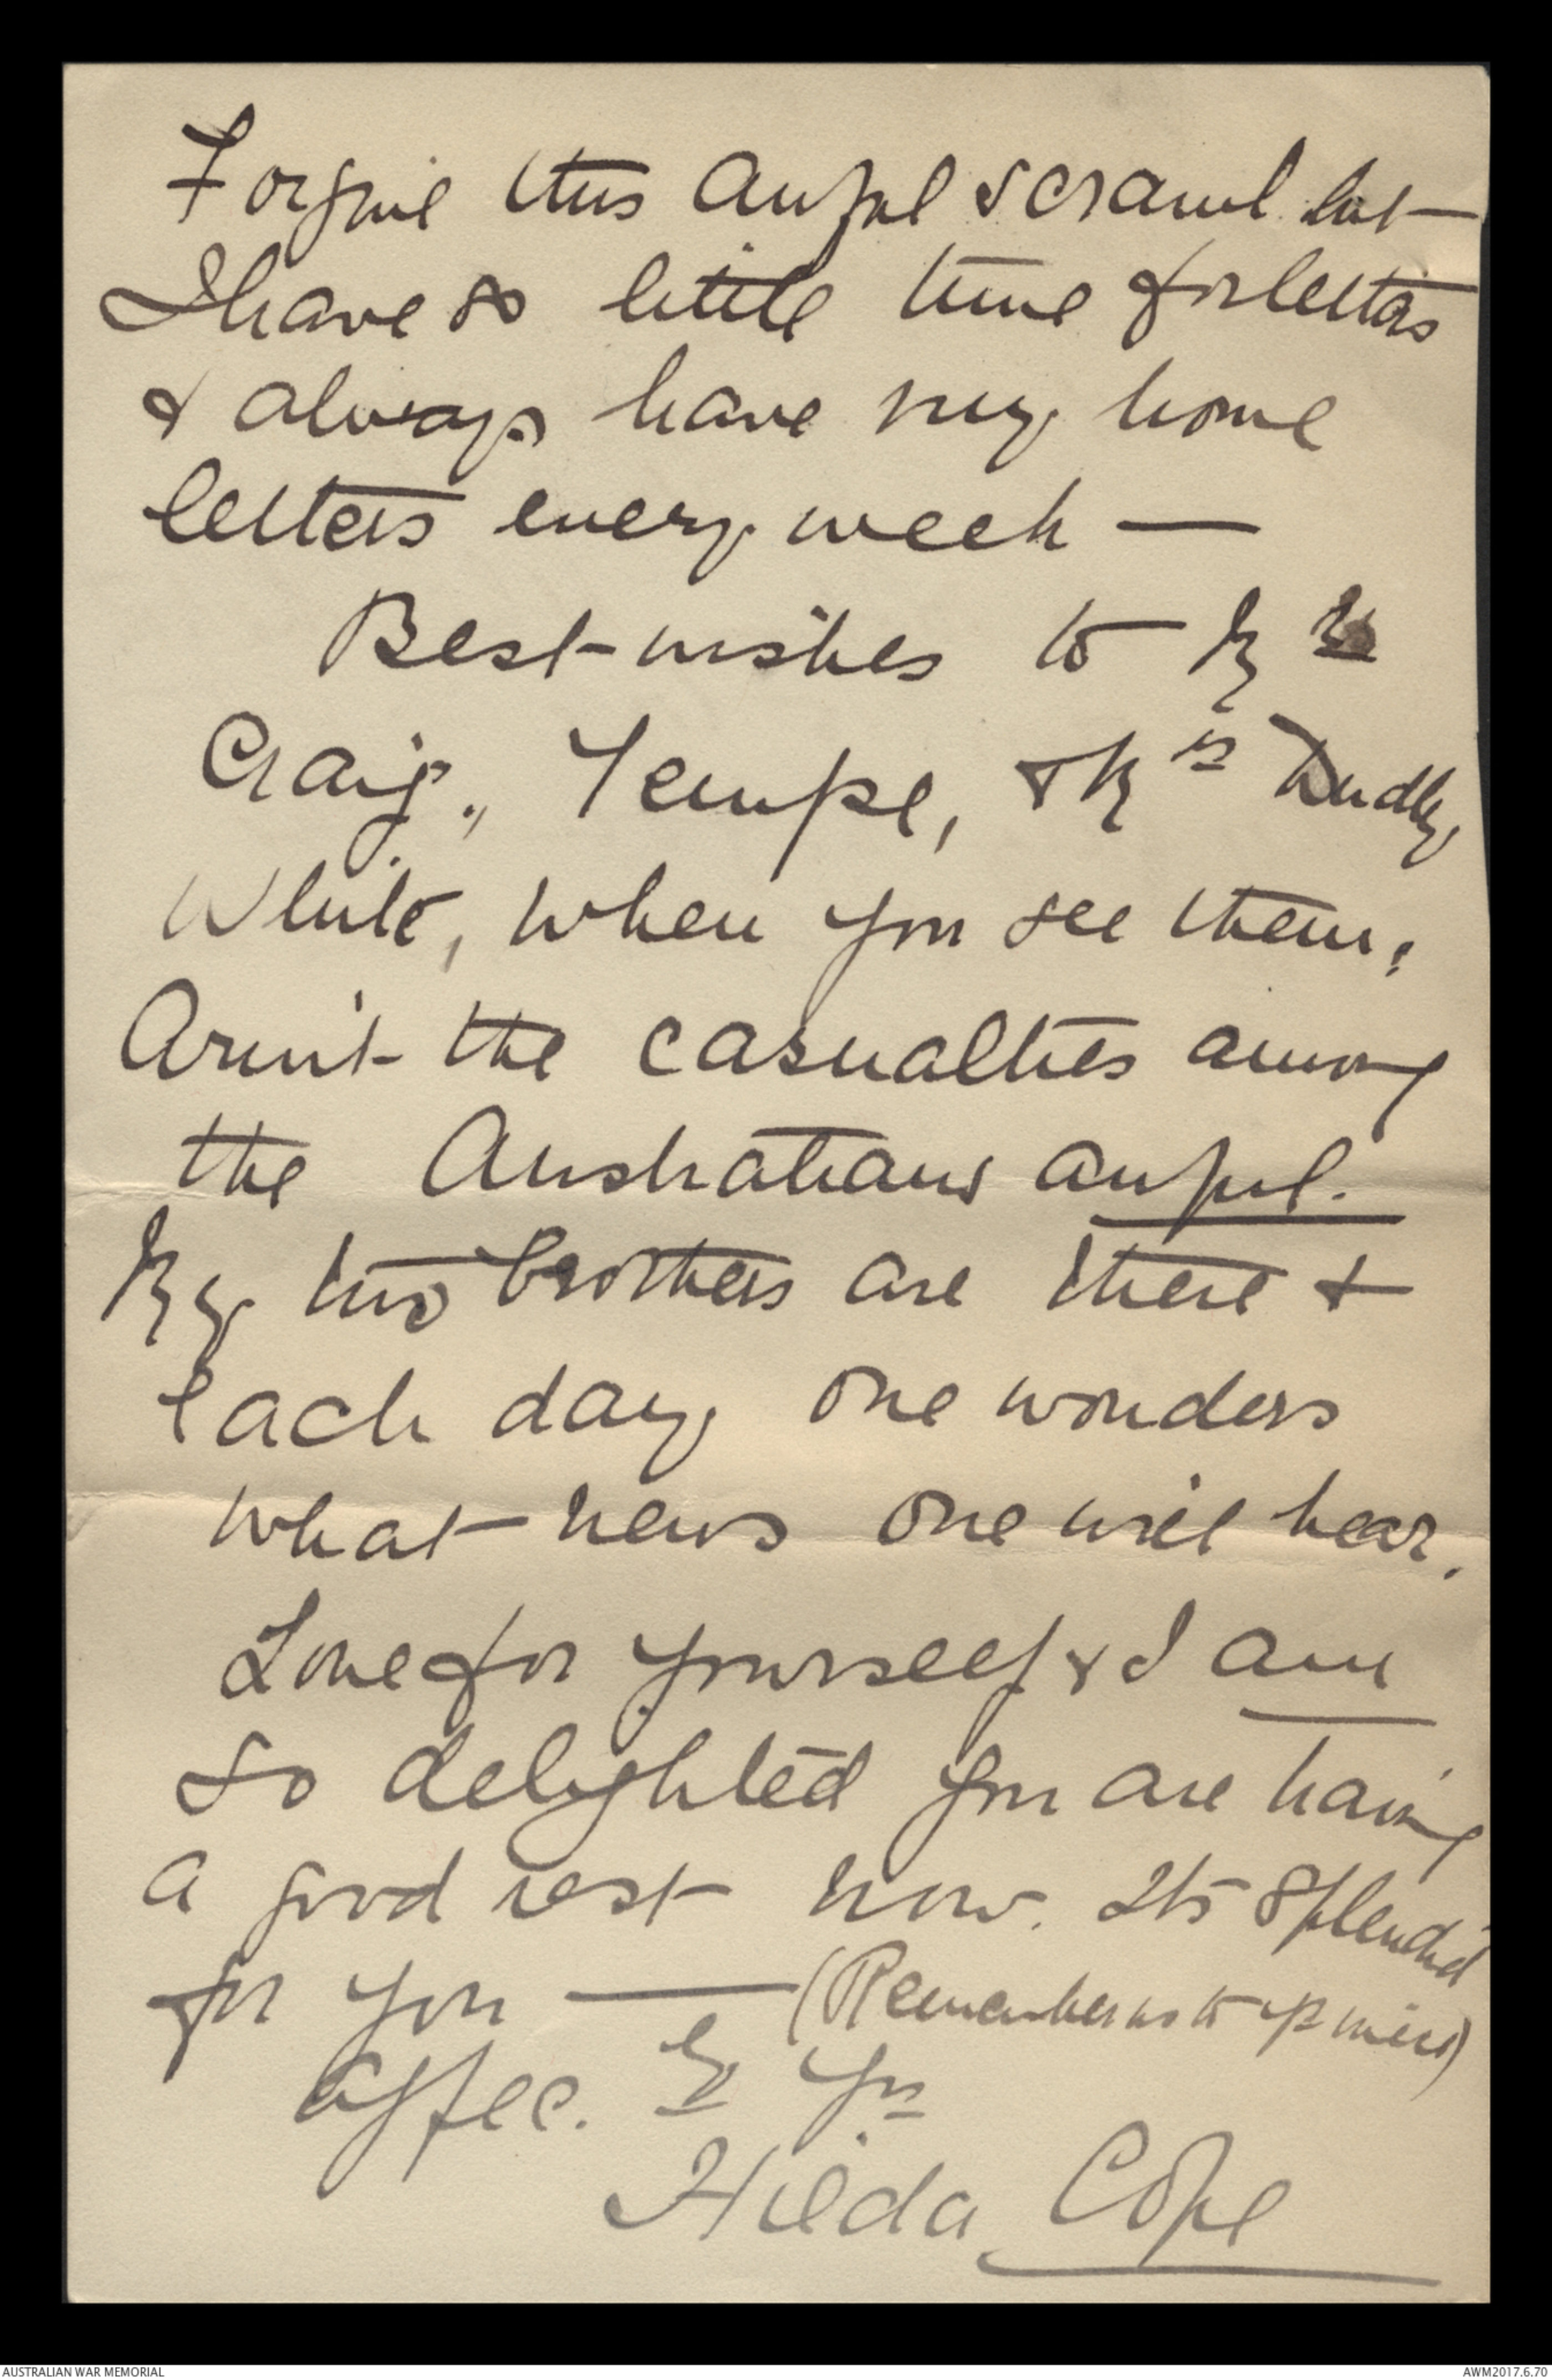 Forgive this awful scrawl but
I have so little time for letters
& always have my home
letters every week —
Best wishes to
Craig, Tempe, & Mrs Dudley
White, when you see them,
Arn't the casualties among
the Australians awful.
My two brothers are there &
each day one wonders
what news one will hear.
Love for yourself & I am
so delighted you are having
a good rest now. Its splendid
for you — (Remember us to
affec. ly yrs
Hilda Cope
AUSTRALIAN WAR MEMORIAL
AWM2017.6.70